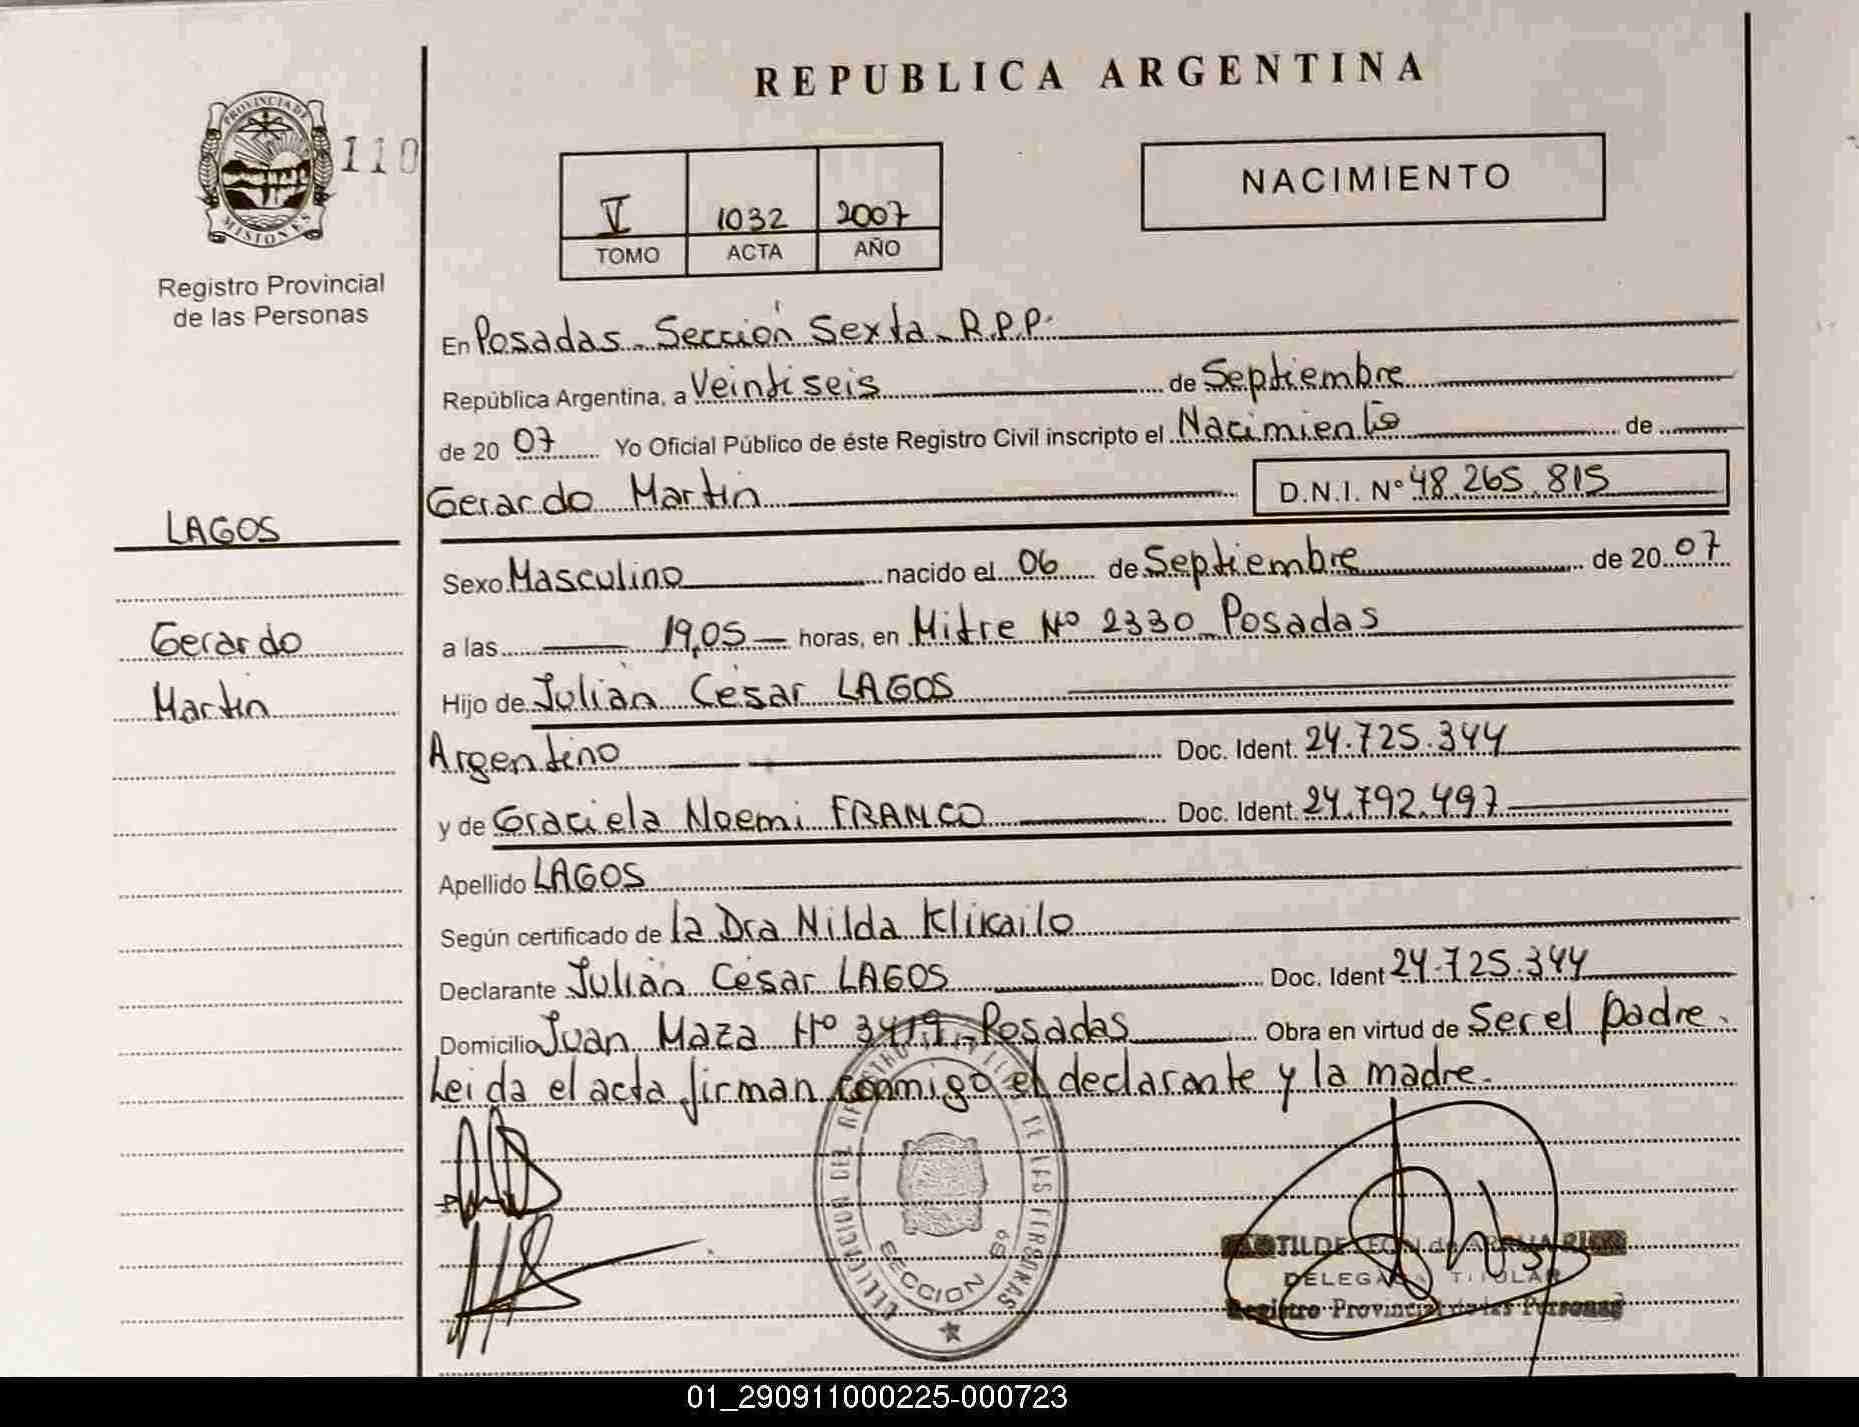 REPUBLICA ARGENTINA
PROVINCIA DE
MISIONES
110
Registro Provincial
de las Personas
V 1032 2007
TOMO ACTA AÑO
NACIMIENTO
En Posadas Sección Sexta R.P.P.
República Argentina, a Veintiseis de Septiembre
de 20 07 Yo Oficial Público de éste Registro Civil inscripto el Nacimiento de
Gerardo Martin D.N.I. Nº 48.265.815
LAGOS
Gerardo
Martin
Sexo Masculino nacido el 06 de Septiembre de 20 07
a las 19,05 horas, en Mitre Nº 2330 Posadas
Hijo de Julián César LAGOS
Argentino Doc. Ident. 24.725.344
y de Graciela Noemi FRANCO Doc. Ident. 24.792.497
Apellido LAGOS
Según certificado de la Dra Nilda Klikailo
Declarante Julián César LAGOS Doc. Ident 24.725.344
Domicilio Juan Maza Nº 3419 Posadas Obra en virtud de Ser el padre.
Leida el acta firman conmigo el declarante y la madre.
SECCION 6º
DELEGADA TITULAR
Registro Provincial de las Personas
01_290911000225-000723